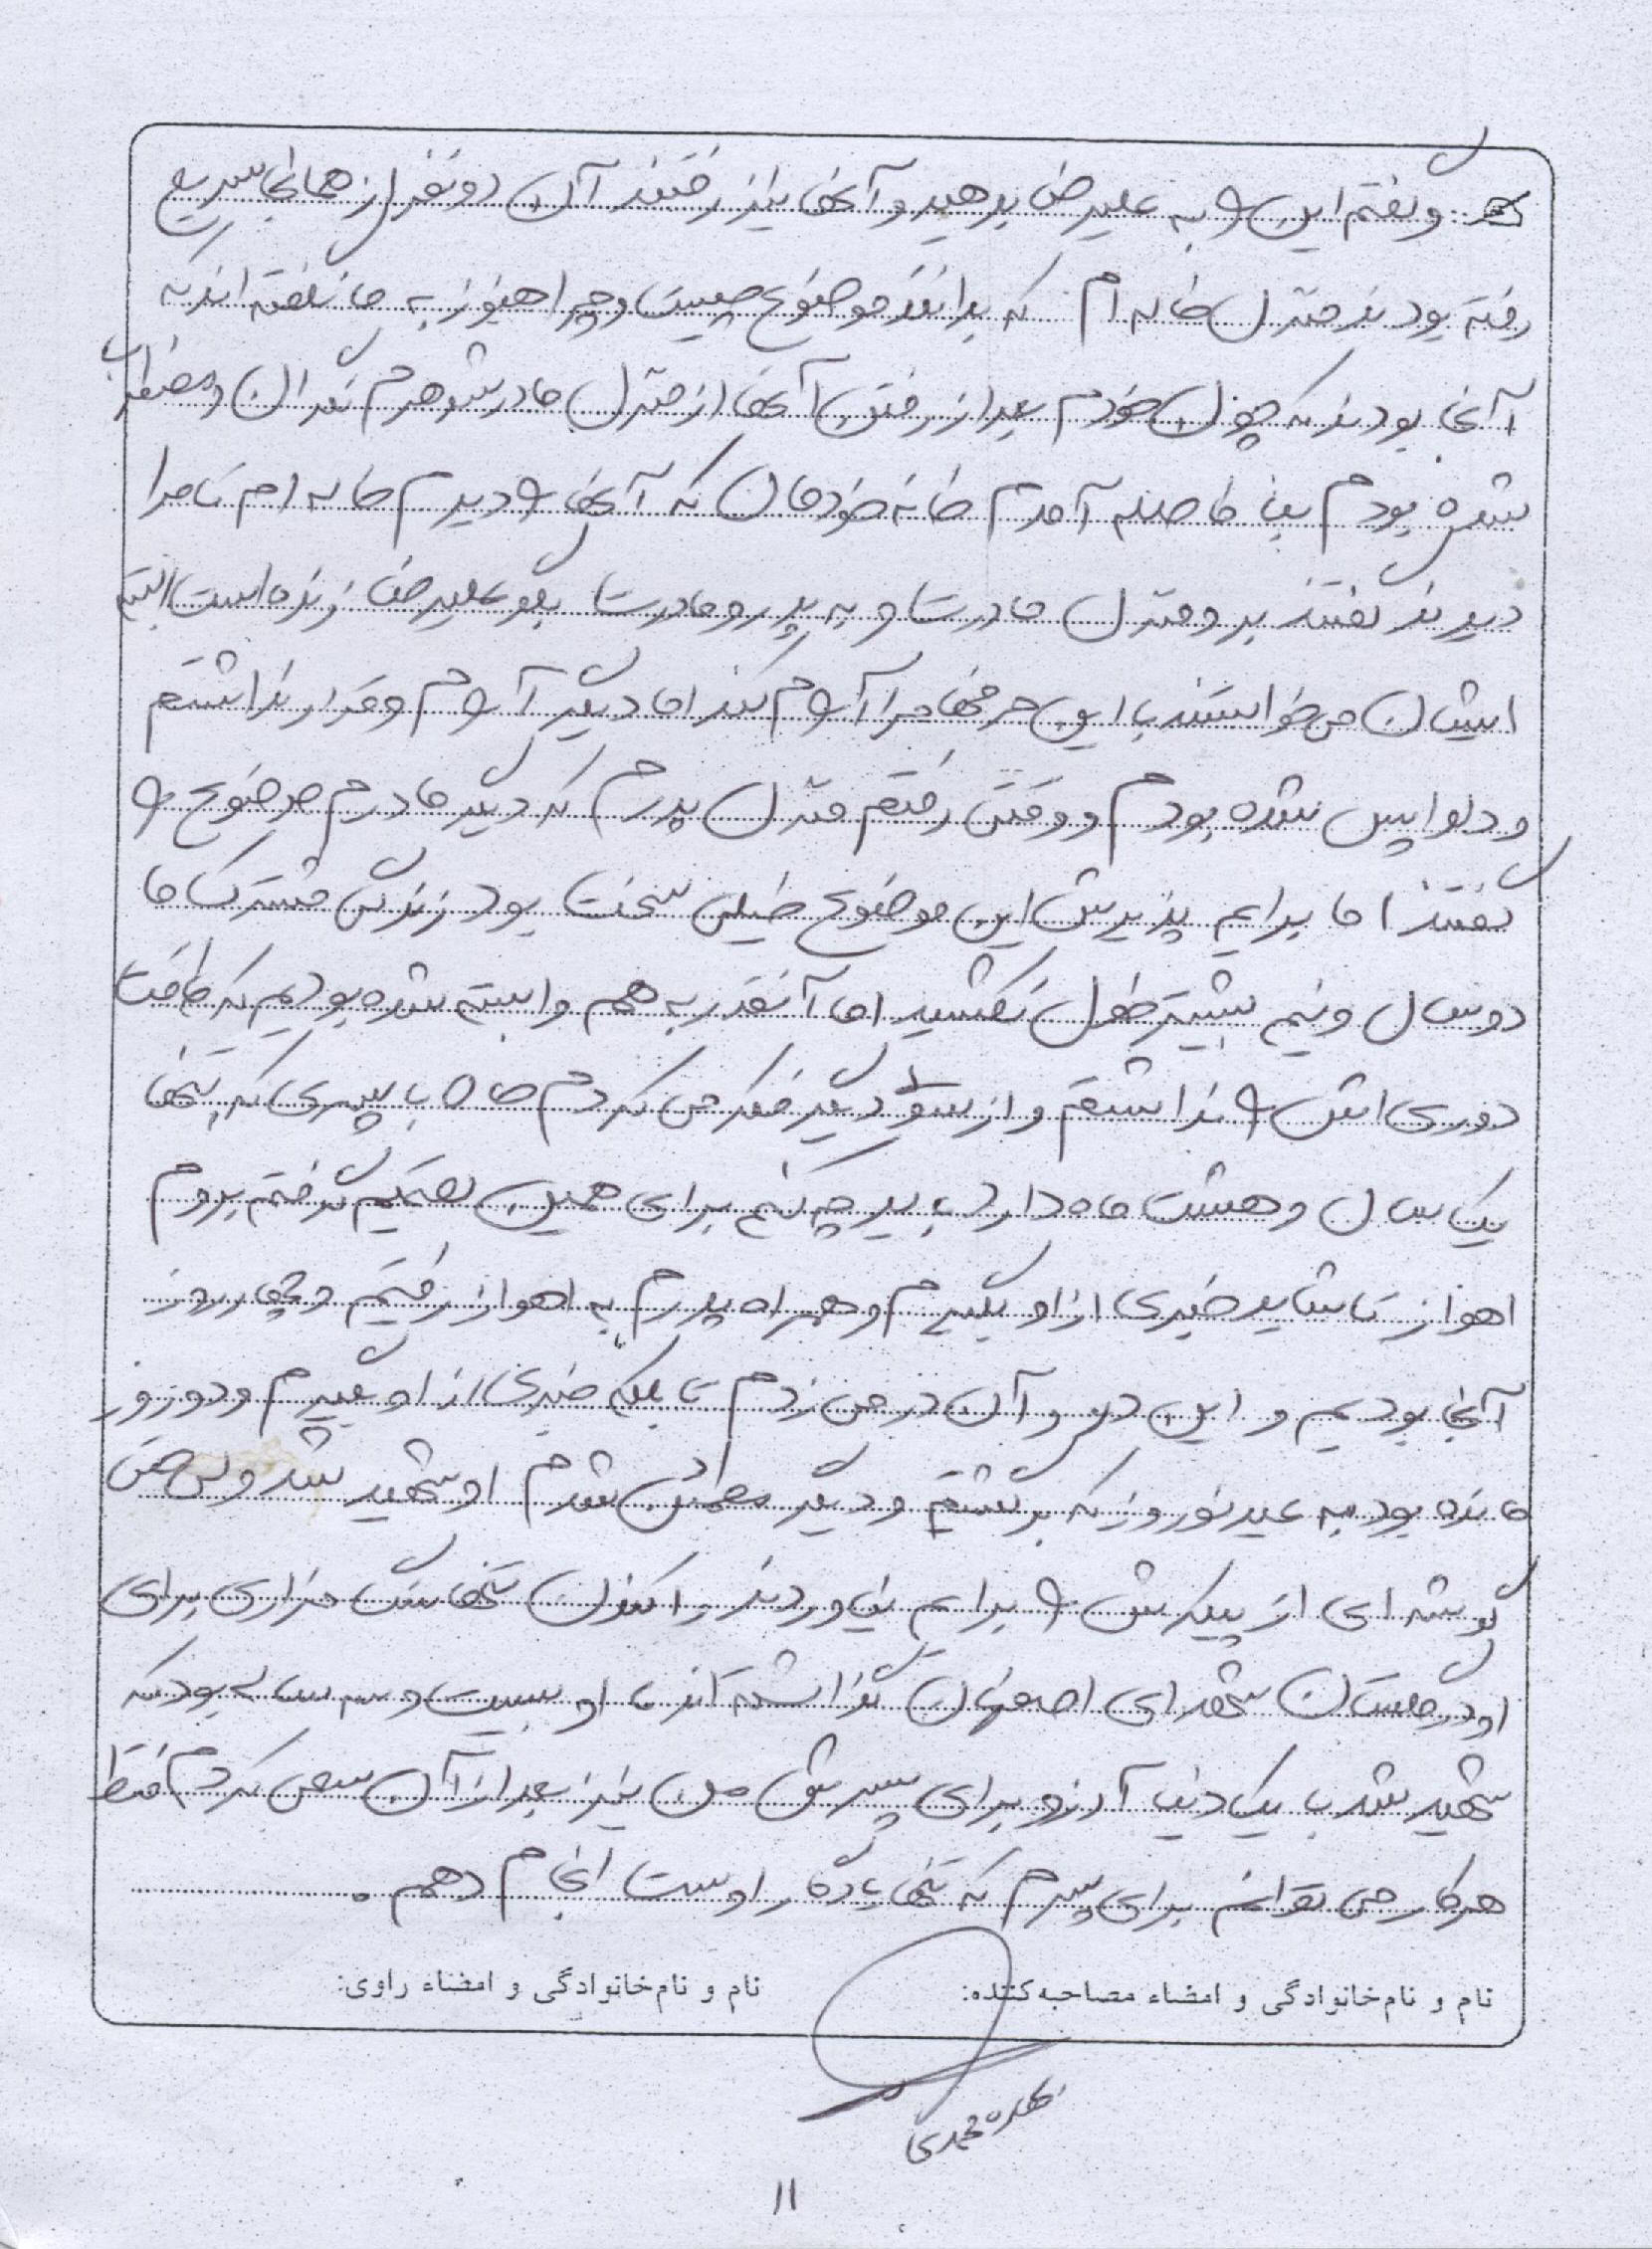 و گفتم این را به علیرضا بدهید و آنها نیز رفتند آن دو نفر از همانجا سریع
رفته بودند منزل خاله ام که بدانند موضوع چیست و چرا هنوز به ما نگفته اند که
آنجا بودند که چون خودم بعد از رفتن آنها از منزل مادر شوهرم نگران و مضطرب
شده بودم بلافاصله آمدم خانه خودمان که آنها را دیدم خاله ام تا مرا
دیدند گفتند برو منزل مادرت و به پدر و مادرت بگو علیرضا زنده است البته
ایشان می خواستند با این حرفها مرا آرام کنند اما دیگر آرام و قرار نداشتم
و دلواپس شده بودم و وقتی رفتم منزل پدرم که دیگر مادرم موضوع را
گفتند اما برایم پذیرش این موضوع خیلی سخت بود زندگی مشترک ما
دو سال و نیم بیشتر طول نکشید اما آنقدر به هم وابسته شده بودیم که طاقت
دوری اش را نداشتم و از سوی دیگر فکر می کردم حالا با پسری که تنها
یک سال و هشت ماه دارد باید چه کنم برای همین تصمیم گرفتم بروم
اهواز تا شاید خبری از او بگیرم و همراه پدرم به اهواز رفتیم و چهار روز
آنجا بودیم و این در و آن در می زدم تا بلکه خبری از او بگیرم و دو روز
مانده بود به عید نوروز که برگشتیم و دیگر مطمئن شدم او شهید شد ولی حتی
گوشه ای از پیکرش را برایم نیاوردند و اکنون تنها سنگ مزاری برای
او در گلستان شهدای اصفهان گذاشته اند او بیست و سه ساله بود که
شهید شد با یک دنیا آرزو برای پسرش من نیز بعد از آن سعی کردم فقط
هرکار می توانم برای پسرم که تنها یادگار اوست انجام دهم .
نام و نام‌خانوادگی و امضاء مصاحبه‌کننده: نام و نام‌خانوادگی و امضاء راوی:
محمدی
۱۱